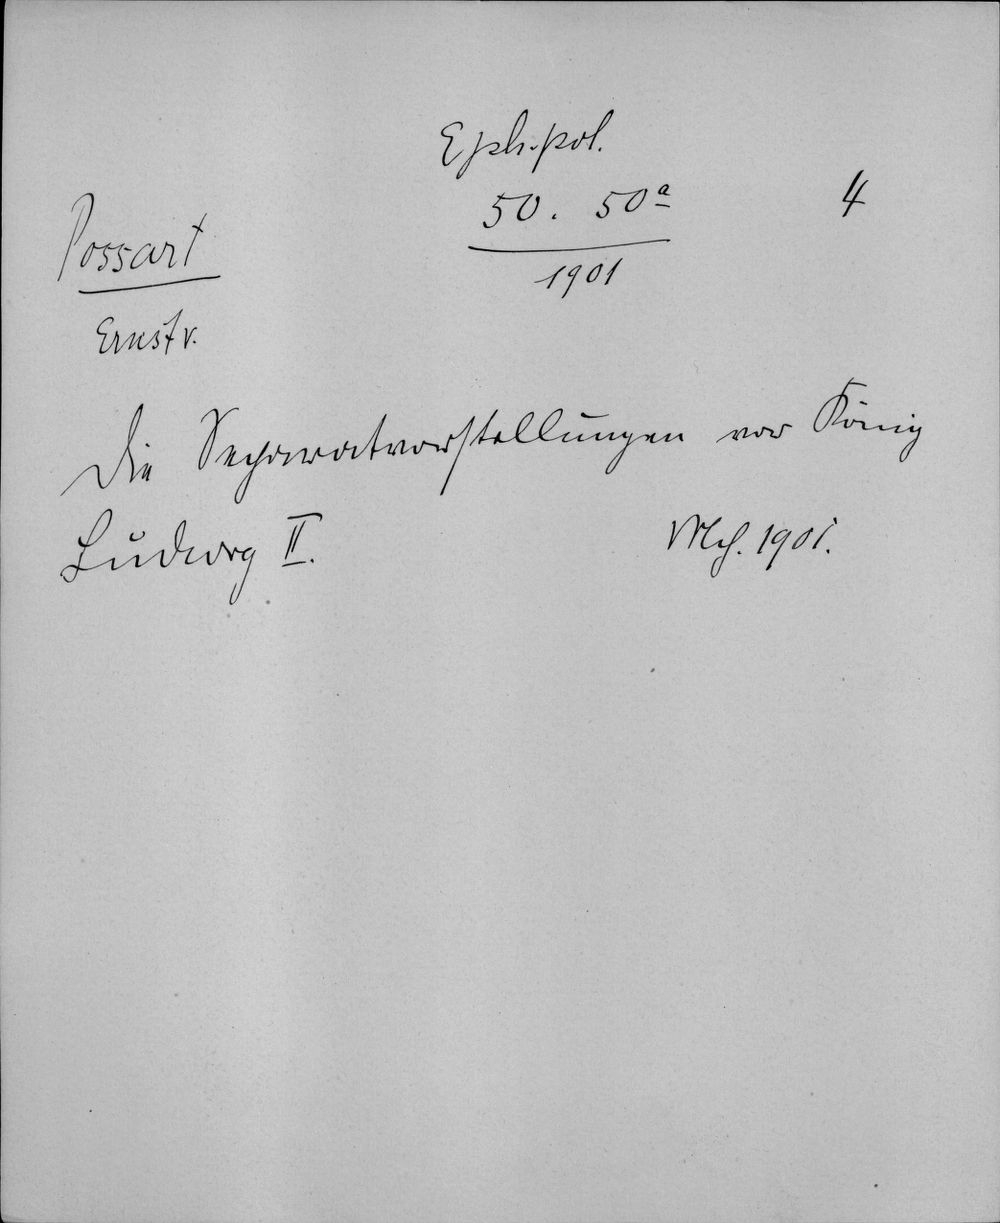 Eph. pol.
50. 50a
4
1901
Possart
Ernst v.
Die Separatvorstellungen vor König
Ludwig II. Mch. 1901.